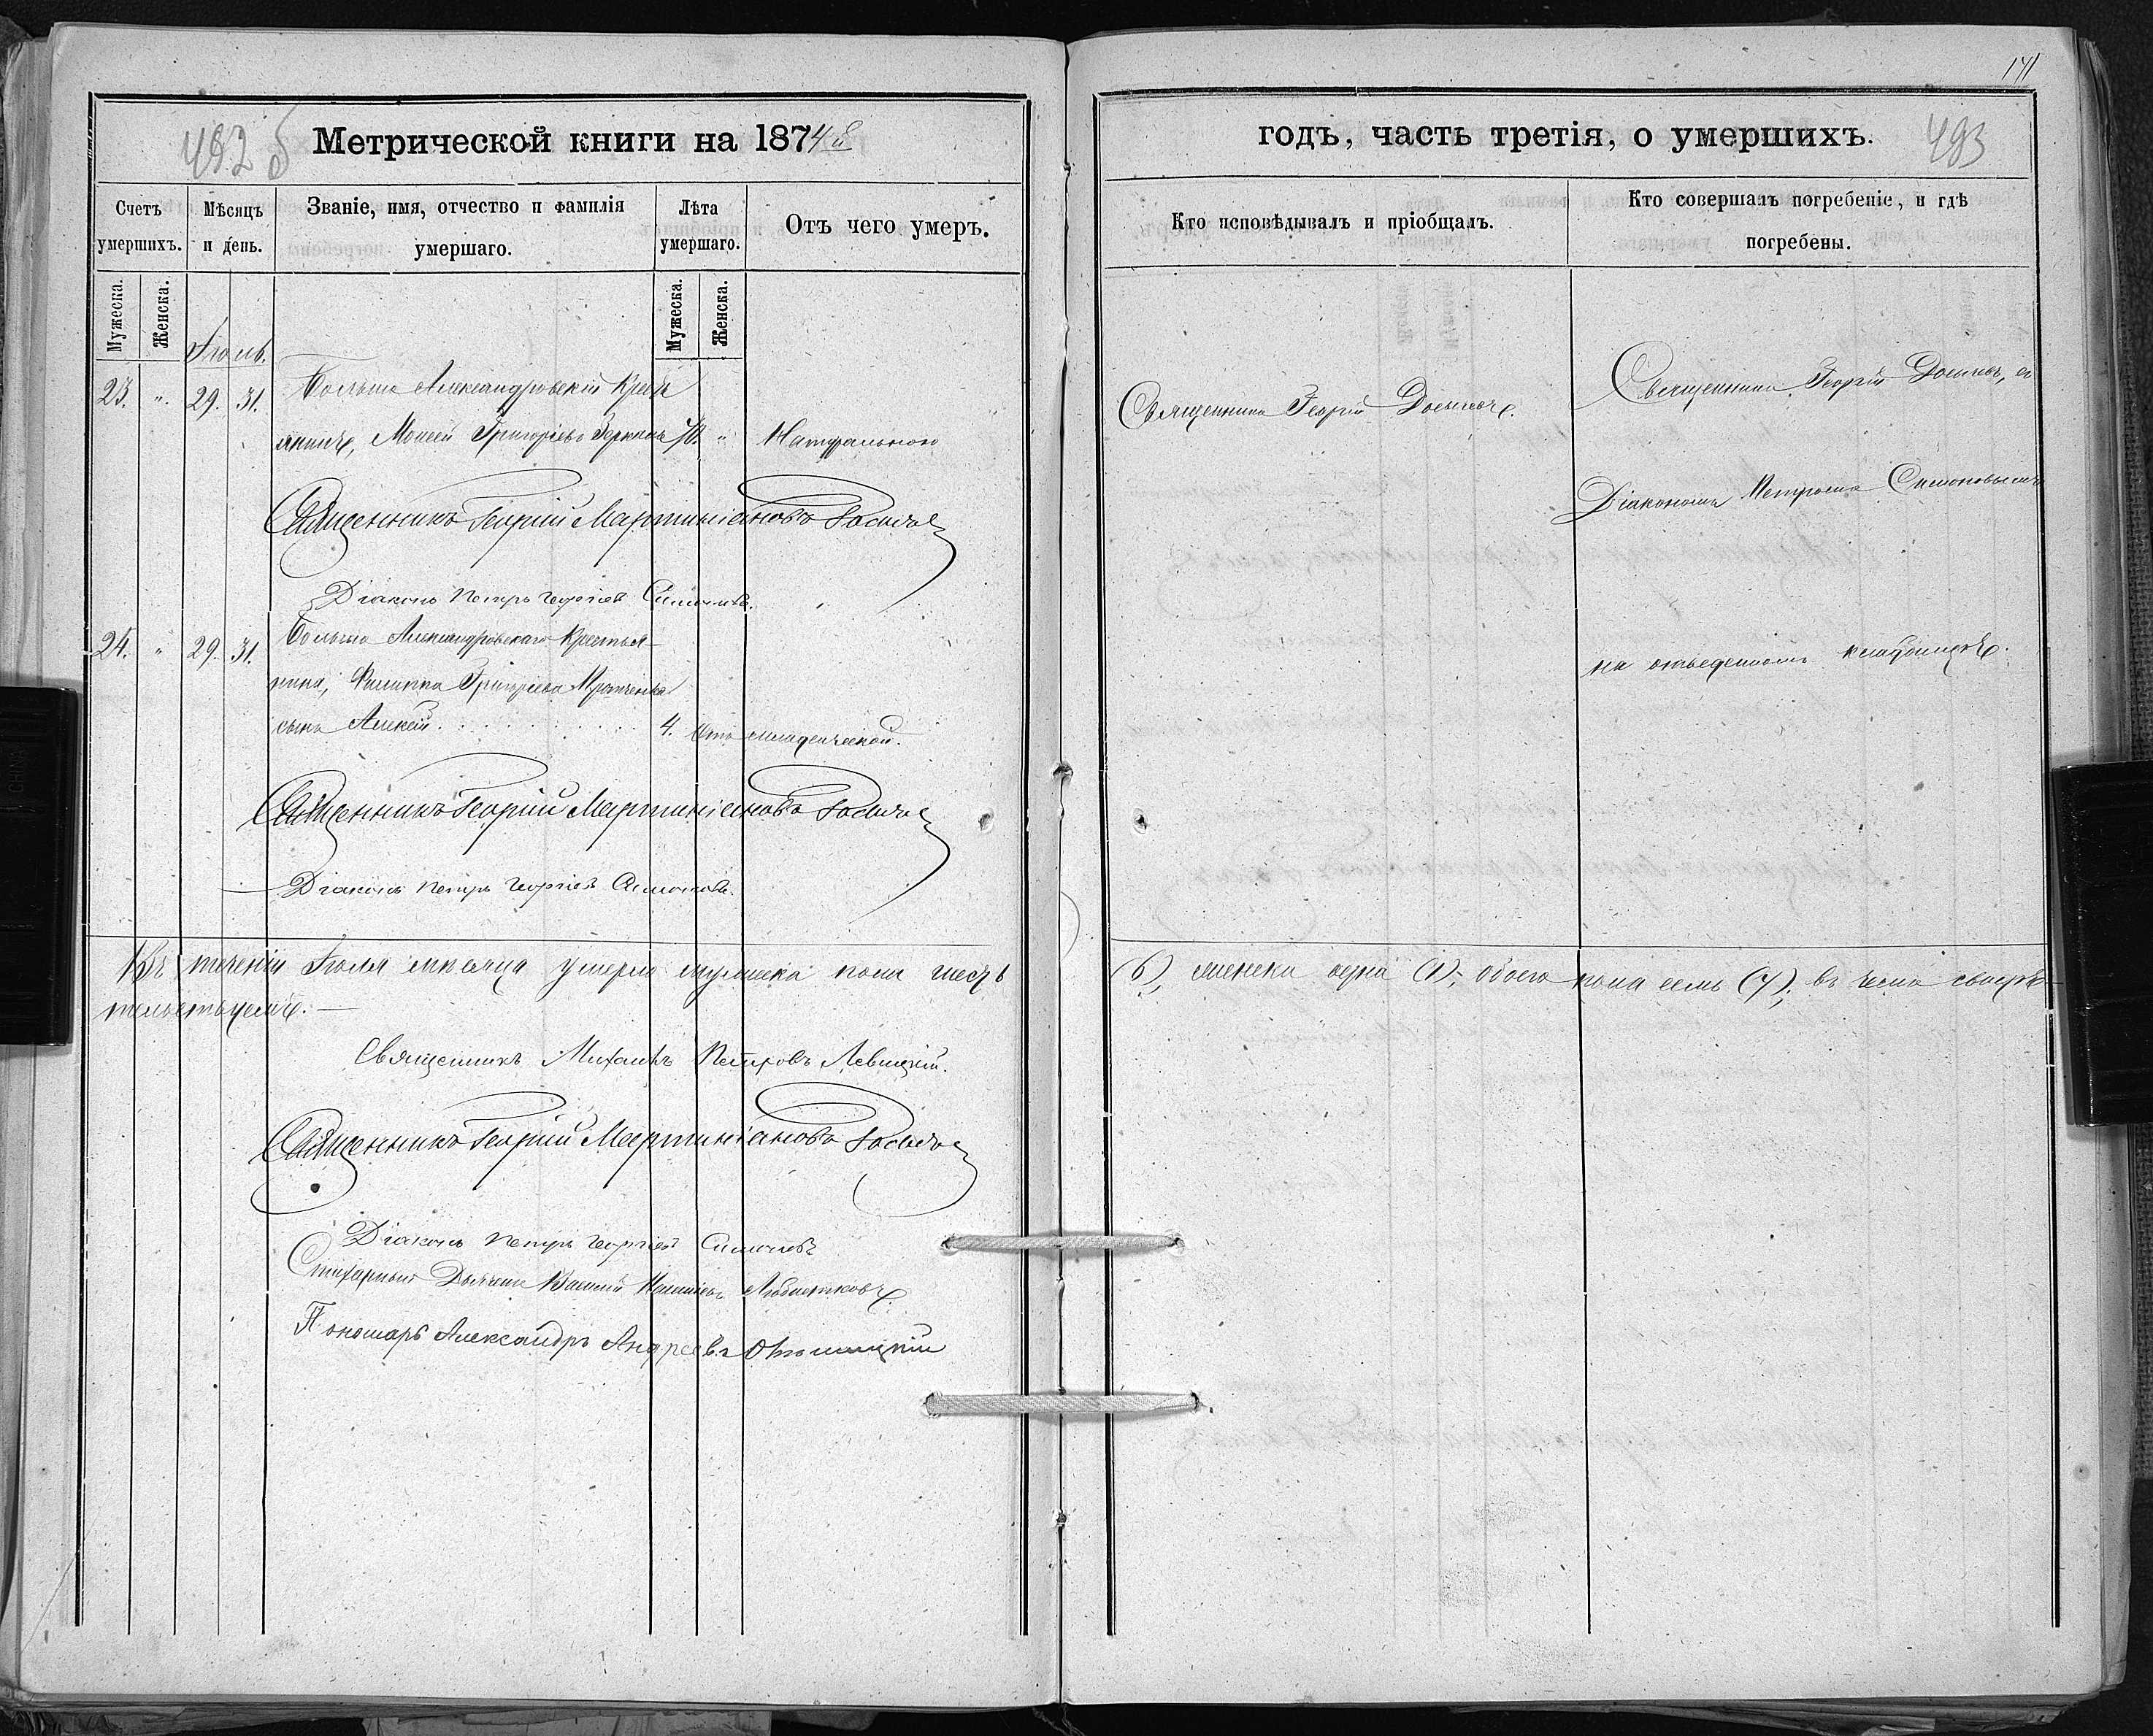 141
492 б
Метрической книги на 1874й
годъ, часть третія, о умершихъ.
493
Счетъ умершихъ.
Мѣсяцъ и день.
Званіе, имя, отчество и фамилія умершаго.
Лѣта умершаго.
Отъ чего умеръ.
Кто исповѣдывалъ и пріобщалъ.
Кто совершалъ погребеніе, и гдѣ погребены.
Мужеска.
Женска.
Мужеска.
Женска.
Іюль.
23. " 29. 31. Больше Александровскій Кресть
янинъ, Моисей Григорьевъ 70. " Натуральною
Священникъ Георгій
Священникъ Георгій съ
Діакономъ Петромъ Симоновымъ
Священникъ Георгій Мартиніановъ
Діаконъ Петръ Георгіевъ Симоновъ.
24. " 29. 31. Больше Александровскаго Крестья-
нина, Филиппа Григорьева
сынъ Алексій. 4. Отъ младенческой.
на отведенномъ кладбищѣ.
Священникъ Георгій Мартиніановъ
Діаконъ Петръ Георгіевъ Симоновъ.
Въ теченіи Іюля мѣсяца умерло мужеска пола шесть (6), женска одна (1); обоего пола семь (7); въ чемъ свидѣ-
тельствуемъ.
Священникъ Михаилъ Петровъ Левицкій.
Священникъ Георгій Мартиніановъ
Діаконъ Петръ Георгіевъ Симоновъ
Стихарный Дьячекъ Василій
Пономарь Александръ Андреевъ